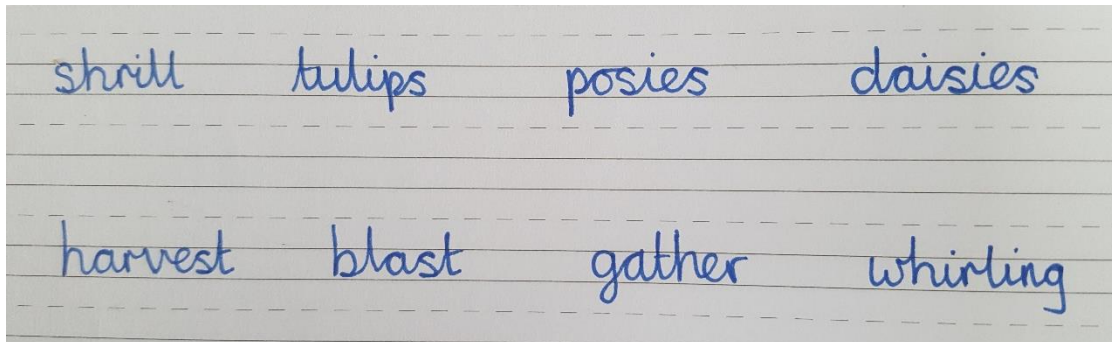 shrill tulips posies daisies
harvest blast gather whirling